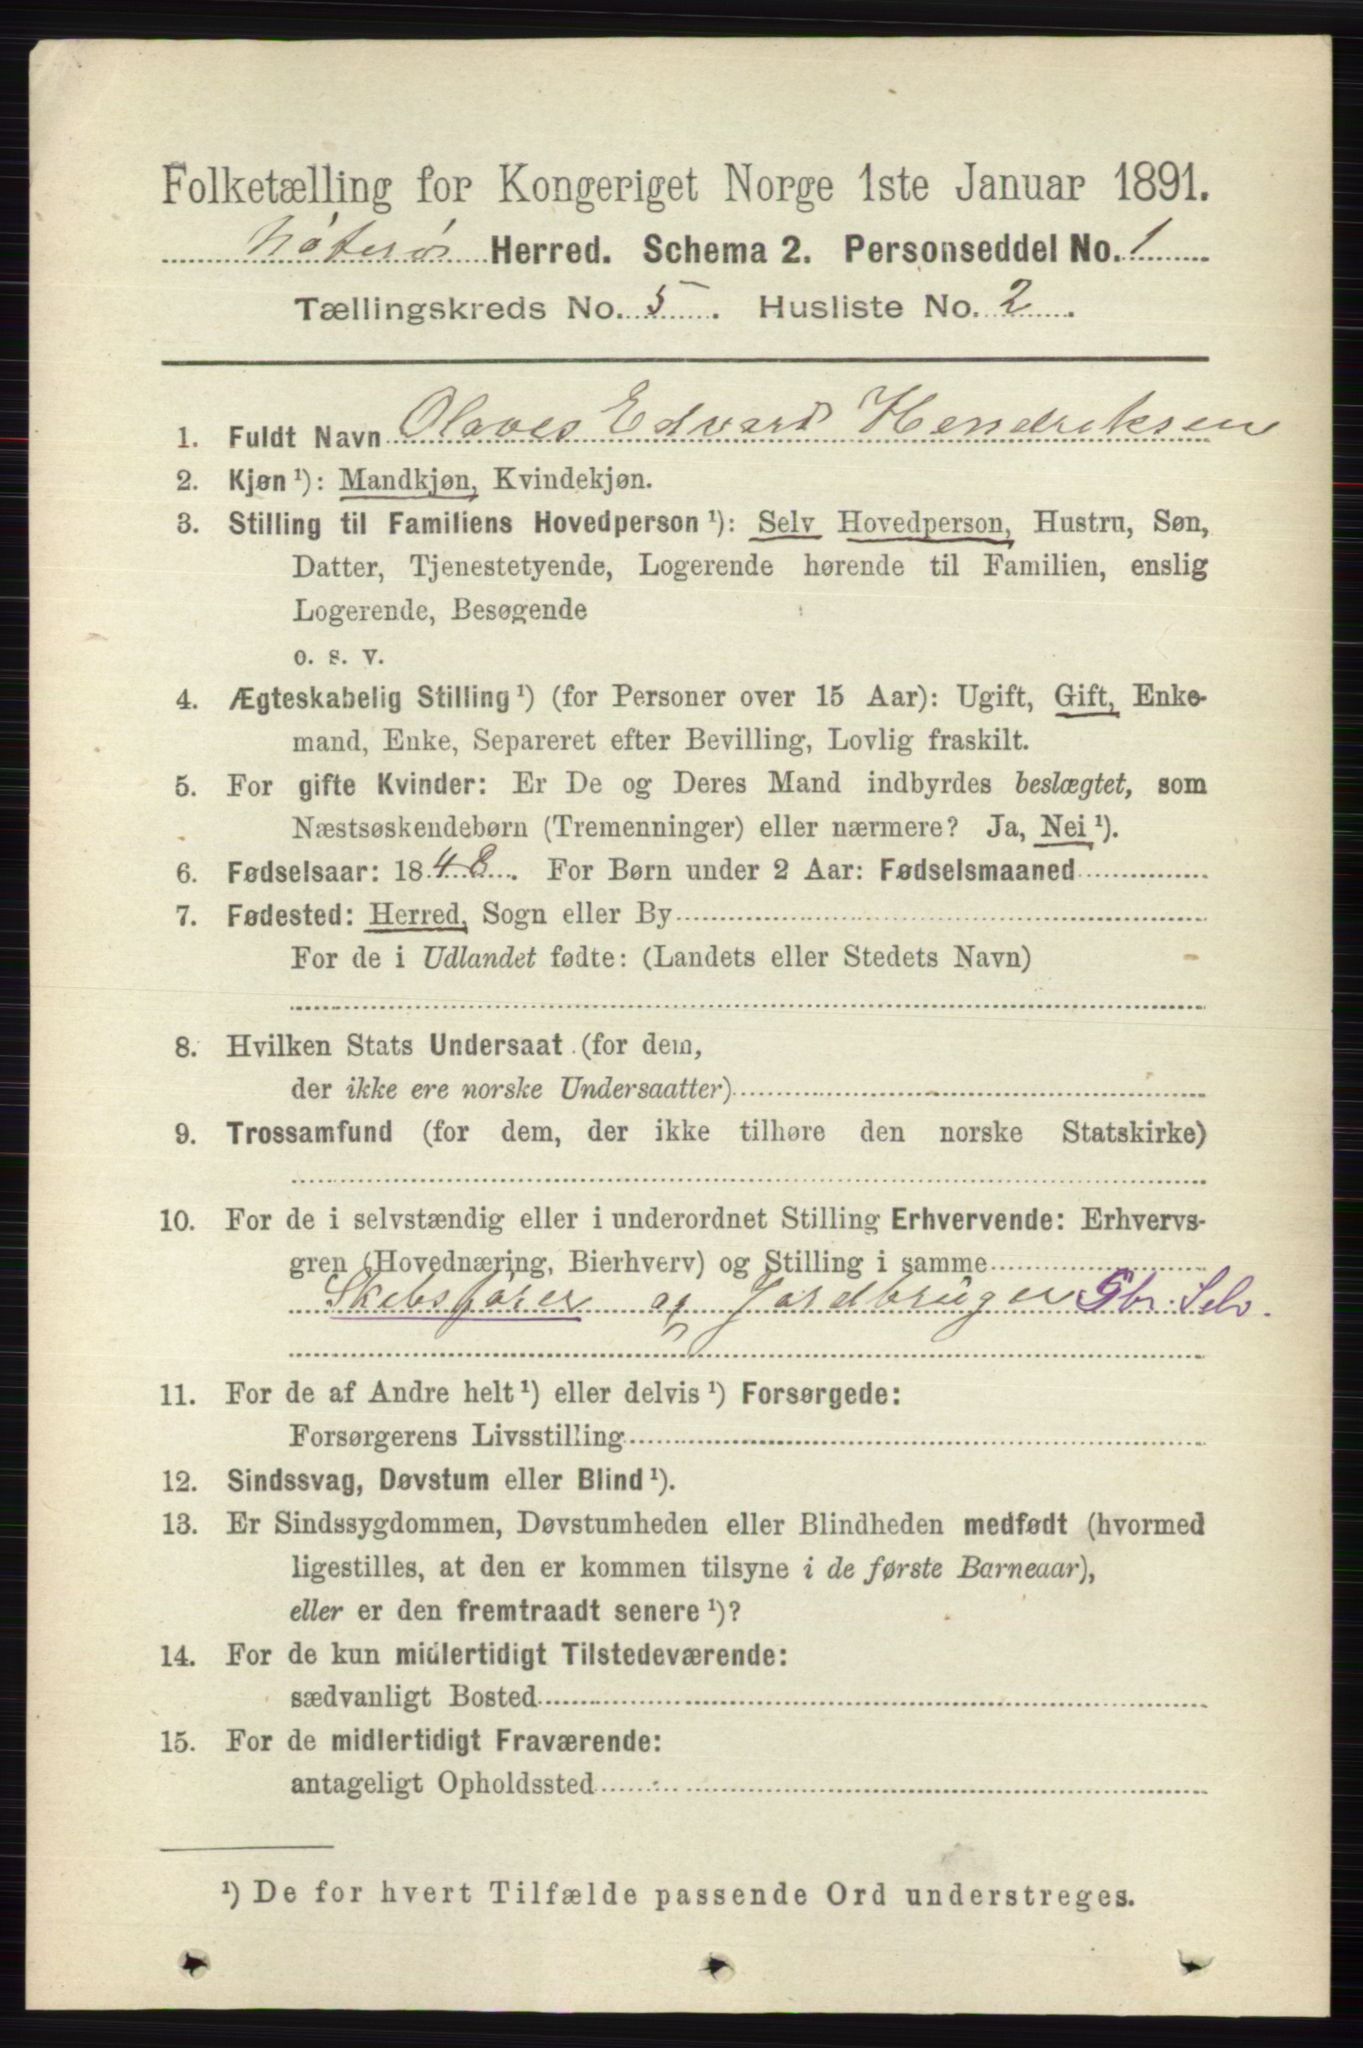 Folketælling for Kongeriget Norge 1ste Januar 1891.
Nøterø Herred. Schema 2. Personseddel No. 1
Tællingskreds No. 5. Husliste No. 2.
1. Fuldt Navn Olaves Edvard Hendriksen
2. Kjøn ¹): Mandkjøn, Kvindekjøn.
3. Stilling til Familiens Hovedperson ¹): Selv Hovedperson, Hustru, Søn,
Datter, Tjenestetyende, Logerende hørende til Familien, enslig
Logerende, Besøgende
o. s. v.
4. Ægteskabelig Stilling ¹) (for Personer over 15 Aar): Ugift, Gift, Enke-
mand, Enke, Separeret efter Bevilling, Lovlig fraskilt.
5. For gifte Kvinder: Er De og Deres Mand indbyrdes beslægtet, som
Næstsøskendebørn (Tremenninger) eller nærmere? Ja, Nei ¹).
6. Fødselsaar: 1848. For Børn under 2 Aar: Fødselsmaaned
7. Fødested: Herred, Sogn eller By
For de i Udlandet fødte: (Landets eller Stedets Navn)
8. Hvilken Stats Undersaat (for dem,
der ikke ere norske Undersaatter)
9. Trossamfund (for dem, der ikke tilhøre den norske Statskirke)
10. For de i selvstændig eller i underordnet Stilling Erhvervende: Erhvervs-
gren (Hovednæring, Bierhverv) og Stilling i samme
Skibsfører og Jordbruger Gbr. Selv.
11. For de af Andre helt ¹) eller delvis ¹) Forsørgede:
Forsørgerens Livsstilling
12. Sindssvag, Døvstum eller Blind ¹).
13. Er Sindssygdommen, Døvstumheden eller Blindheden medfødt (hvormed
ligestilles, at den er kommen tilsyne i de første Barneaar),
eller er den fremtraadt senere ¹)?
14. For de kun midlertidigt Tilstedeværende:
sædvanligt Bosted
15. For de midlertidigt Fraværende:
antageligt Opholdssted
¹) De for hvert Tilfælde passende Ord understreges.